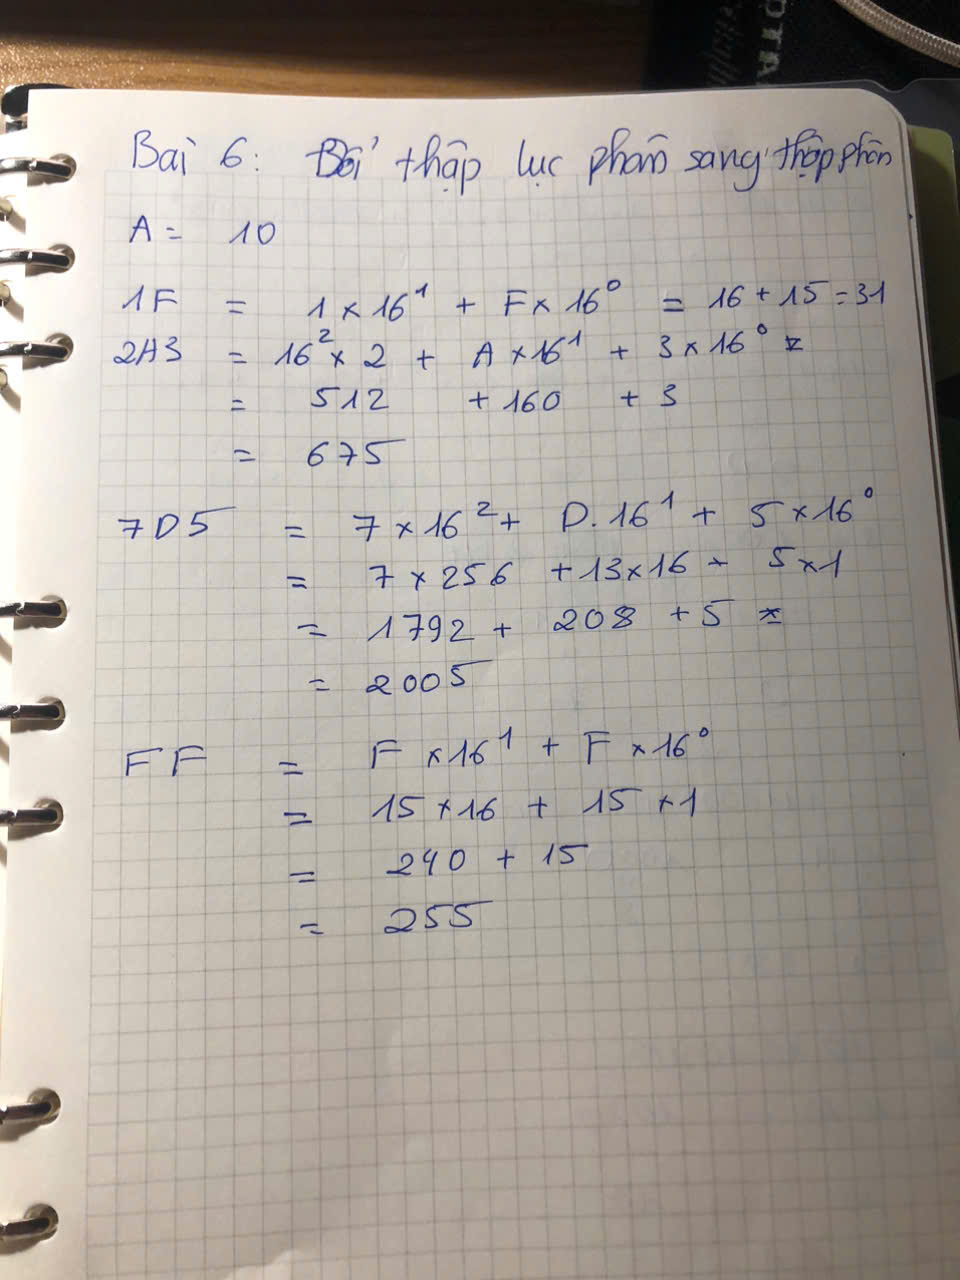 Bài 6: Đổi thập lục phân sang thập phân
A = 10
1F = 1 × 16¹ + F × 16⁰ = 16 + 15 = 31
2A3 = 16² × 2 + A × 16¹ + 3 × 16⁰ =
= 512 + 160 + 3
= 675
7D5 = 7 × 16² + D. 16¹ + 5 × 16⁰
= 7 × 256 + 13 × 16 + 5 × 1
= 1792 + 208 + 5 =
= 2005
FF = F × 16¹ + F × 16⁰
= 15 × 16 + 15 × 1
= 240 + 15
= 255